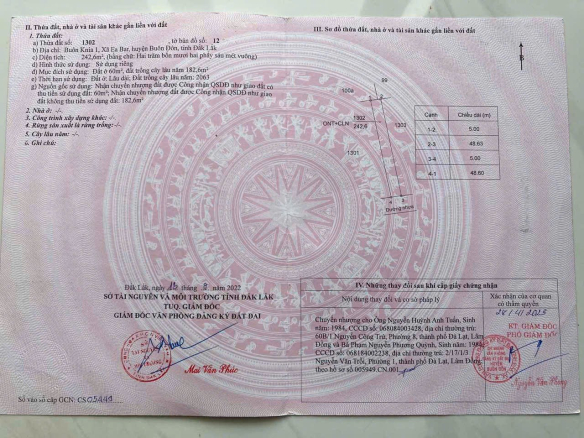 II. Thửa đất, nhà ở và tài sản khác gắn liền với đất
1. Thửa đất:
a) Thửa đất số: 1302 , tờ bản đồ số: 12
b) Địa chỉ: Buôn Knia 1, Xã Ea Bar, huyện Buôn Đôn, tỉnh Đắk Lắk
c) Diện tích: 242,6m², (bằng chữ: Hai trăm bốn mươi hai phẩy sáu mét vuông)
d) Hình thức sử dụng: Sử dụng riêng
đ) Mục đích sử dụng: Đất ở 60m², đất trồng cây lâu năm 182,6m²
e) Thời hạn sử dụng: Đất ở: Lâu dài; Đất trồng cây lâu năm: 2063
g) Nguồn gốc sử dụng: Nhận chuyển nhượng đất được Công nhận QSDĐ như giao đất có
thu tiền sử dụng đất: 60m²; Nhận chuyển nhượng đất được Công nhận QSDĐ như giao
đất không thu tiền sử dụng đất: 182,6m²
2. Nhà ở: -/-
3. Công trình xây dựng khác: -/-
4. Rừng sản xuất là rừng trồng: -/-
5. Cây lâu năm: -/-
6. Ghi chú:
Đắk Lắk, ngày tháng năm 2022
SỞ TÀI NGUYÊN VÀ MÔI TRƯỜNG TỈNH ĐẮK LẮK
TUQ. GIÁM ĐỐC
GIÁM ĐỐC VĂN PHÒNG ĐĂNG KÝ ĐẤT ĐAI
Mai Văn Phúc
Số vào sổ cấp GCN: CS
III. Sơ đồ thửa đất, nhà ở và tài sản khác gắn liền với đất
B
1302
ONT+CLN
242,6
1303
1301
Đường nhựa
Cạnh Chiều dài (m)
1-2 5.00
2-3 48.63
3-4 5.00
4-1 48.60
IV. Những thay đổi sau khi cấp giấy chứng nhận
Nội dung thay đổi và cơ sở pháp lý
Xác nhận của cơ quan
có thẩm quyền
Chuyển nhượng cho Ông Nguyễn Huỳnh Anh Tuấn, Sinh
năm: 1984, CCCD số: 068084003428, địa chỉ thường trú:
60B/1 Nguyễn Công Trứ, Phường 8, thành phố Đà Lạt, Lâm
Đồng và Bà Phạm Nguyễn Phương Quỳnh, Sinh năm: 1984,
CCCD số: 068184002238, địa chỉ thường trú: 2/17/1/5
Nguyễn Văn Trỗi, Phường 1, thành phố Đà Lạt, Lâm Đồng;
theo hồ sơ số 005949.CN.001
28/4/2025
KT. GIÁM ĐỐC
PHÓ GIÁM ĐỐC
Nguyễn Văn Phong